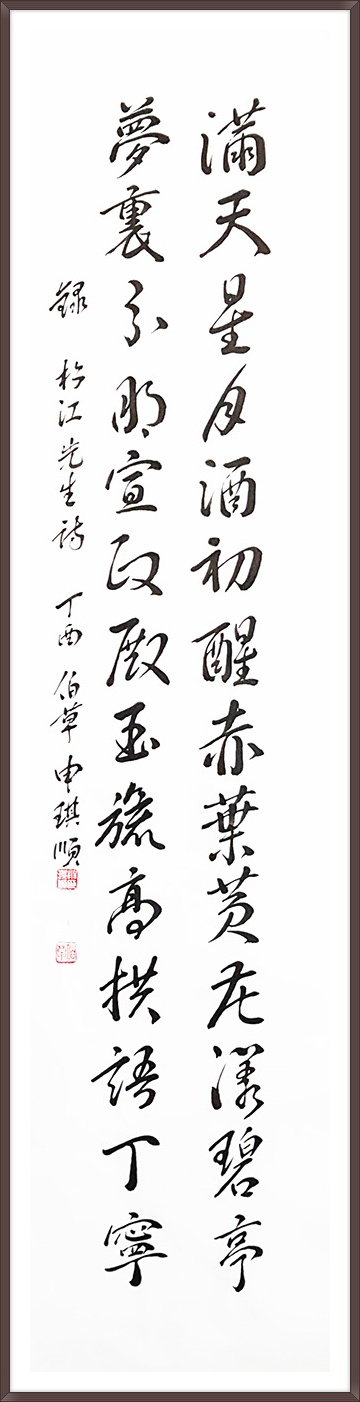 滿天星月酒初醒赤葉黃花漾碧亭
夢裏分明宣政殿玉旒高拱語丁寧
錄 松江先生詩 丁酉 伯草 申琪順